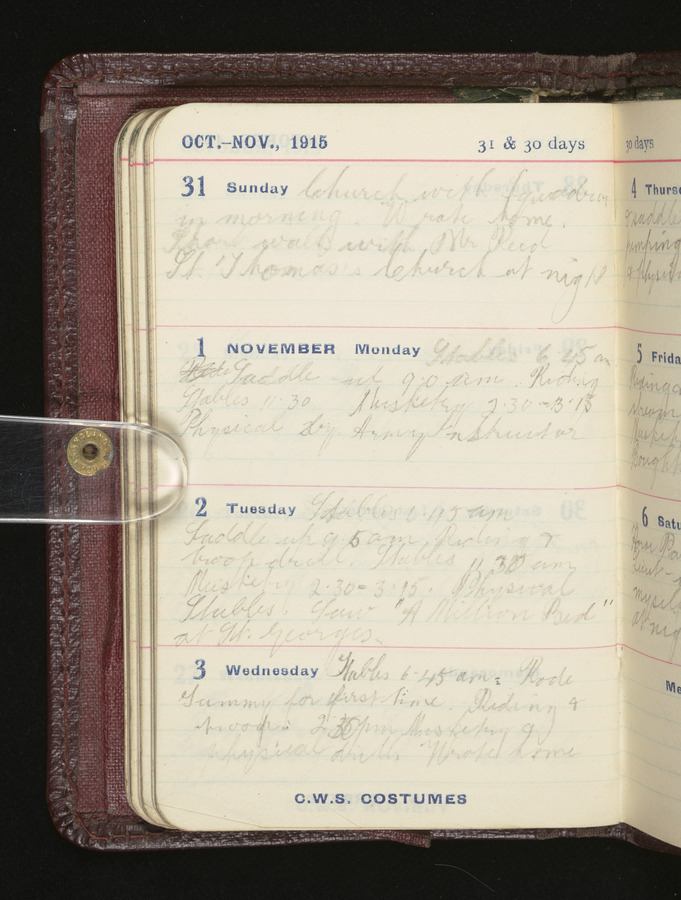 OCT.–NOV., 1915 31 & 30 days
31 Sunday Church with Squadron
in morning. Wrote home.
Short walk with Mr Reed
St. Thomas's Church at night
1 NOVEMBER Monday Stables 6.45 am
Saddle up 9.0 am. Riding
Stables 11.30 Musketry 2.30-3.15
Physical by Army Instructor
2 Tuesday Stables 6.45 am
Saddle up 9.5 am Riding &
troop drill. Stables 11.30 am
Musketry 2.30-3.15. Physical
Stables. Saw "A Million Bid"
at St. Georges.
3 Wednesday Stables 6.45 am. Rode
Tummy for first time. Riding &
troop. 2.35pm Musketry &
physical drill. Wrote home
C.W.S. COSTUMES
30 days
4 Thurs
saddle
jumping
& physic
5 Frida
Riding
6 Satu
at nig
Me